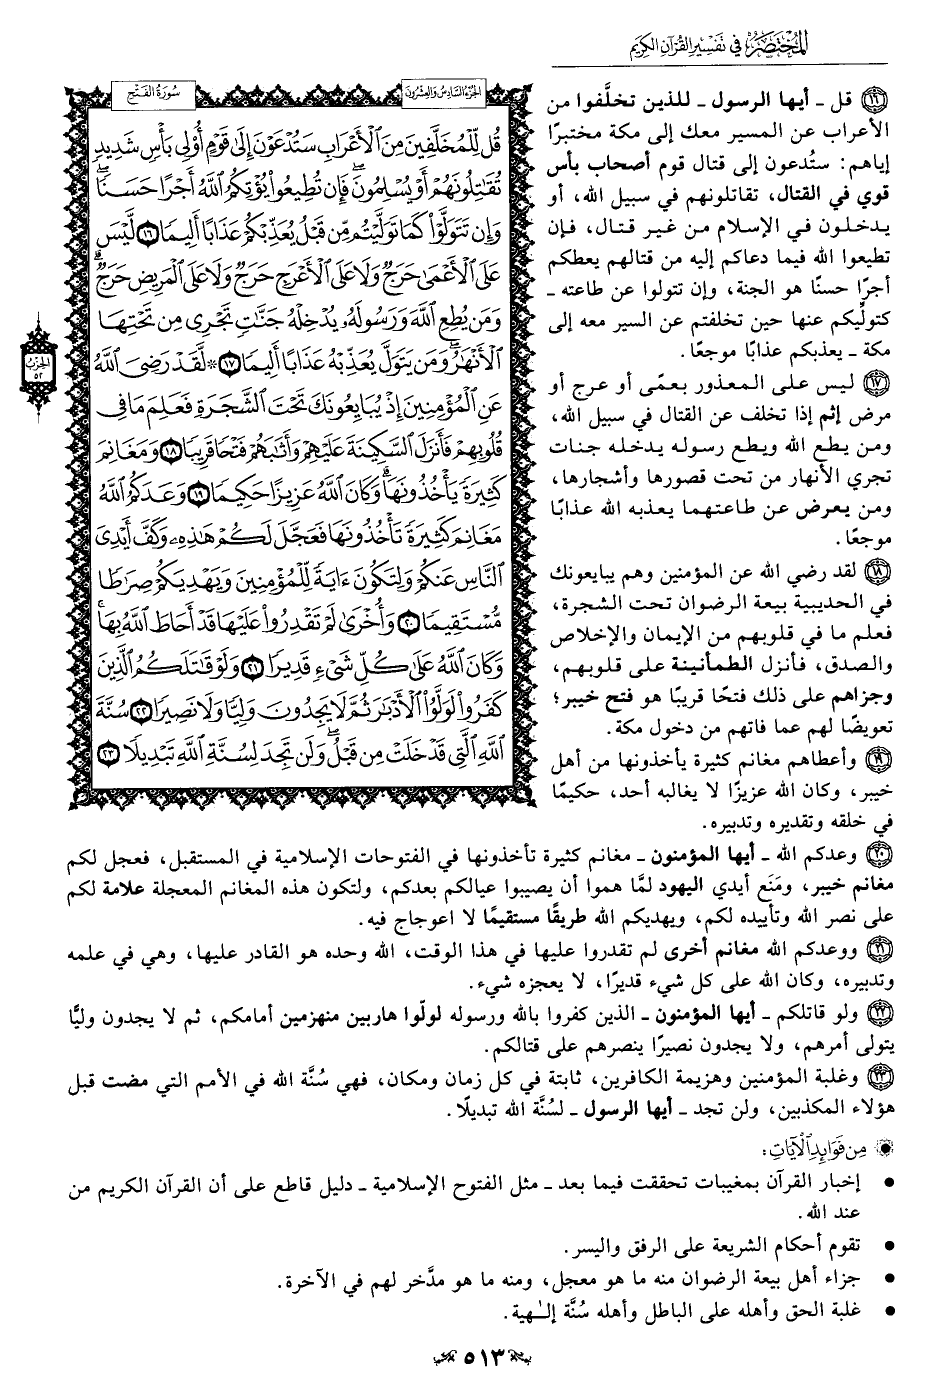 المختصر في تفسير القرآن الكريم
الجزء السادس والعشرون
سورة الفتح
قُل لِّلْمُخَلَّفِينَ مِنَ ٱلْأَعْرَابِ سَتُدْعَوْنَ إِلَىٰ قَوْمٍ أُو۟لِى بَأْسٍ شَدِيدٍ
تُقَٰتِلُونَهُمْ أَوْ يُسْلِمُونَ ۖ فَإِن تُطِيعُوا۟ يُؤْتِكُمُ ٱللَّهُ أَجْرًا حَسَنًا ۖ
وَإِن تَتَوَلَّوْا۟ كَمَا تَوَلَّيْتُم مِّن قَبْلُ يُعَذِّبْكُمْ عَذَابًا أَلِيمًا ١٦ لَّيْسَ
عَلَى ٱلْأَعْمَىٰ حَرَجٌ وَلَا عَلَى ٱلْأَعْرَجِ حَرَجٌ وَلَا عَلَى ٱلْمَرِيضِ حَرَجٌ ۗ
وَمَن يُطِعِ ٱللَّهَ وَرَسُولَهُۥ يُدْخِلْهُ جَنَّٰتٍ تَجْرِى مِن تَحْتِهَا
ٱلْأَنْهَٰرُ ۖ وَمَن يَتَوَلَّ يُعَذِّبْهُ عَذَابًا أَلِيمًا ١٧ ۞ لَّقَدْ رَضِىَ ٱللَّهُ
عَنِ ٱلْمُؤْمِنِينَ إِذْ يُبَايِعُونَكَ تَحْتَ ٱلشَّجَرَةِ فَعَلِمَ مَا فِى
قُلُوبِهِمْ فَأَنزَلَ ٱلسَّكِينَةَ عَلَيْهِمْ وَأَثَٰبَهُمْ فَتْحًا قَرِيبًا ١٨ وَمَغَانِمَ
كَثِيرَةً يَأْخُذُونَهَا ۗ وَكَانَ ٱللَّهُ عَزِيزًا حَكِيمًا ١٩ وَعَدَكُمُ ٱللَّهُ
مَغَانِمَ كَثِيرَةً تَأْخُذُونَهَا فَعَجَّلَ لَكُمْ هَٰذِهِۦ وَكَفَّ أَيْدِىَ
ٱلنَّاسِ عَنكُمْ وَلِتَكُونَ ءَايَةً لِّلْمُؤْمِنِينَ وَيَهْدِيَكُمْ صِرَٰطًا
مُّسْتَقِيمًا ٢٠ وَأُخْرَىٰ لَمْ تَقْدِرُوا۟ عَلَيْهَا قَدْ أَحَاطَ ٱللَّهُ بِهَا ۚ
وَكَانَ ٱللَّهُ عَلَىٰ كُلِّ شَىْءٍ قَدِيرًا ٢١ وَلَوْ قَٰتَلَكُمُ ٱلَّذِينَ
كَفَرُوا۟ لَوَلَّوُا۟ ٱلْأَدْبَٰرَ ثُمَّ لَا يَجِدُونَ وَلِيًّا وَلَا نَصِيرًا ٢٢ سُنَّةَ
ٱللَّهِ ٱلَّتِى قَدْ خَلَتْ مِن قَبْلُ ۖ وَلَن تَجِدَ لِسُنَّةِ ٱللَّهِ تَبْدِيلًا ٢٣
الحزب
٥٢
١٦ قل ـ أيها الرسول ـ للذين تخلَّفوا من
الأعراب عن المسير معك إلى مكة مختبرًا
إياهم: ستُدعون إلى قتال قوم أصحاب بأس
قوي في القتال، تقاتلونهم في سبيل الله، أو
يدخلون في الإسلام من غير قتال، فإن
تطيعوا الله فيما دعاكم إليه من قتالهم يعطكم
أجرًا حسنًا هو الجنة، وإن تتولوا عن طاعته ـ
كتولّيكم عنها حين تخلفتم عن السير معه إلى
مكة ـ يعذبكم عذابًا موجعًا.
١٧ ليس على المعذور بعمًى أو عرج أو
مرض إثم إذا تخلف عن القتال في سبيل الله،
ومن يطع الله ويطع رسوله يدخله جنات
تجري الأنهار من تحت قصورها وأشجارها،
ومن يعرض عن طاعتهما يعذبه الله عذابًا
موجعًا.
١٨ لقد رضي الله عن المؤمنين وهم يبايعونك
في الحديبية بيعة الرضوان تحت الشجرة،
فعلم ما في قلوبهم من الإيمان والإخلاص
والصدق، فأنزل الطمأنينة على قلوبهم،
وجزاهم على ذلك فتحًا قريبًا هو فتح خيبر؛
تعويضًا لهم عما فاتهم من دخول مكة.
١٩ وأعطاهم مغانم كثيرة يأخذونها من أهل
خيبر، وكان الله عزيزًا لا يغالبه أحد، حكيمًا
في خلقه وتقديره وتدبيره.
٢٠ وعدكم الله ـ أيها المؤمنون ـ مغانم كثيرة تأخذونها في الفتوحات الإسلامية في المستقبل، فعجل لكم
مغانم خيبر، ومَنَع أيدي اليهود لمَّا هموا أن يصيبوا عيالكم بعدكم، ولتكون هذه المغانم المعجلة علامة لكم
على نصر الله وتأييده لكم، ويهديكم الله طريقًا مستقيمًا لا اعوجاج فيه.
٢١ ووعدكم الله مغانم أخرى لم تقدروا عليها في هذا الوقت، الله وحده هو القادر عليها، وهي في علمه
وتدبيره، وكان الله على كل شيء قديرًا، لا يعجزه شيء.
٢٢ ولو قاتلكم ـ أيها المؤمنون ـ الذين كفروا بالله ورسوله لولّوا هاربين منهزمين أمامكم، ثم لا يجدون وليًّا
يتولى أمرهم، ولا يجدون نصيرًا ينصرهم على قتالكم.
٢٣ وغلبة المؤمنين وهزيمة الكافرين، ثابتة في كل زمان ومكان، فهي سُنَّة الله في الأمم التي مضت قبل
هؤلاء المكذبين، ولن تجد ـ أيها الرسول ـ لسُنَّة الله تبديلًا.
من فوائد الآيات:
• إخبار القرآن بمغيبات تحققت فيما بعد ـ مثل الفتوح الإسلامية ـ دليل قاطع على أن القرآن الكريم من
عند الله.
• تقوم أحكام الشريعة على الرفق واليسر.
• جزاء أهل بيعة الرضوان منه ما هو معجل، ومنه ما هو مدَّخر لهم في الآخرة.
• غلبة الحق وأهله على الباطل وأهله سُنَّة إلـٰهية.
٥١٣